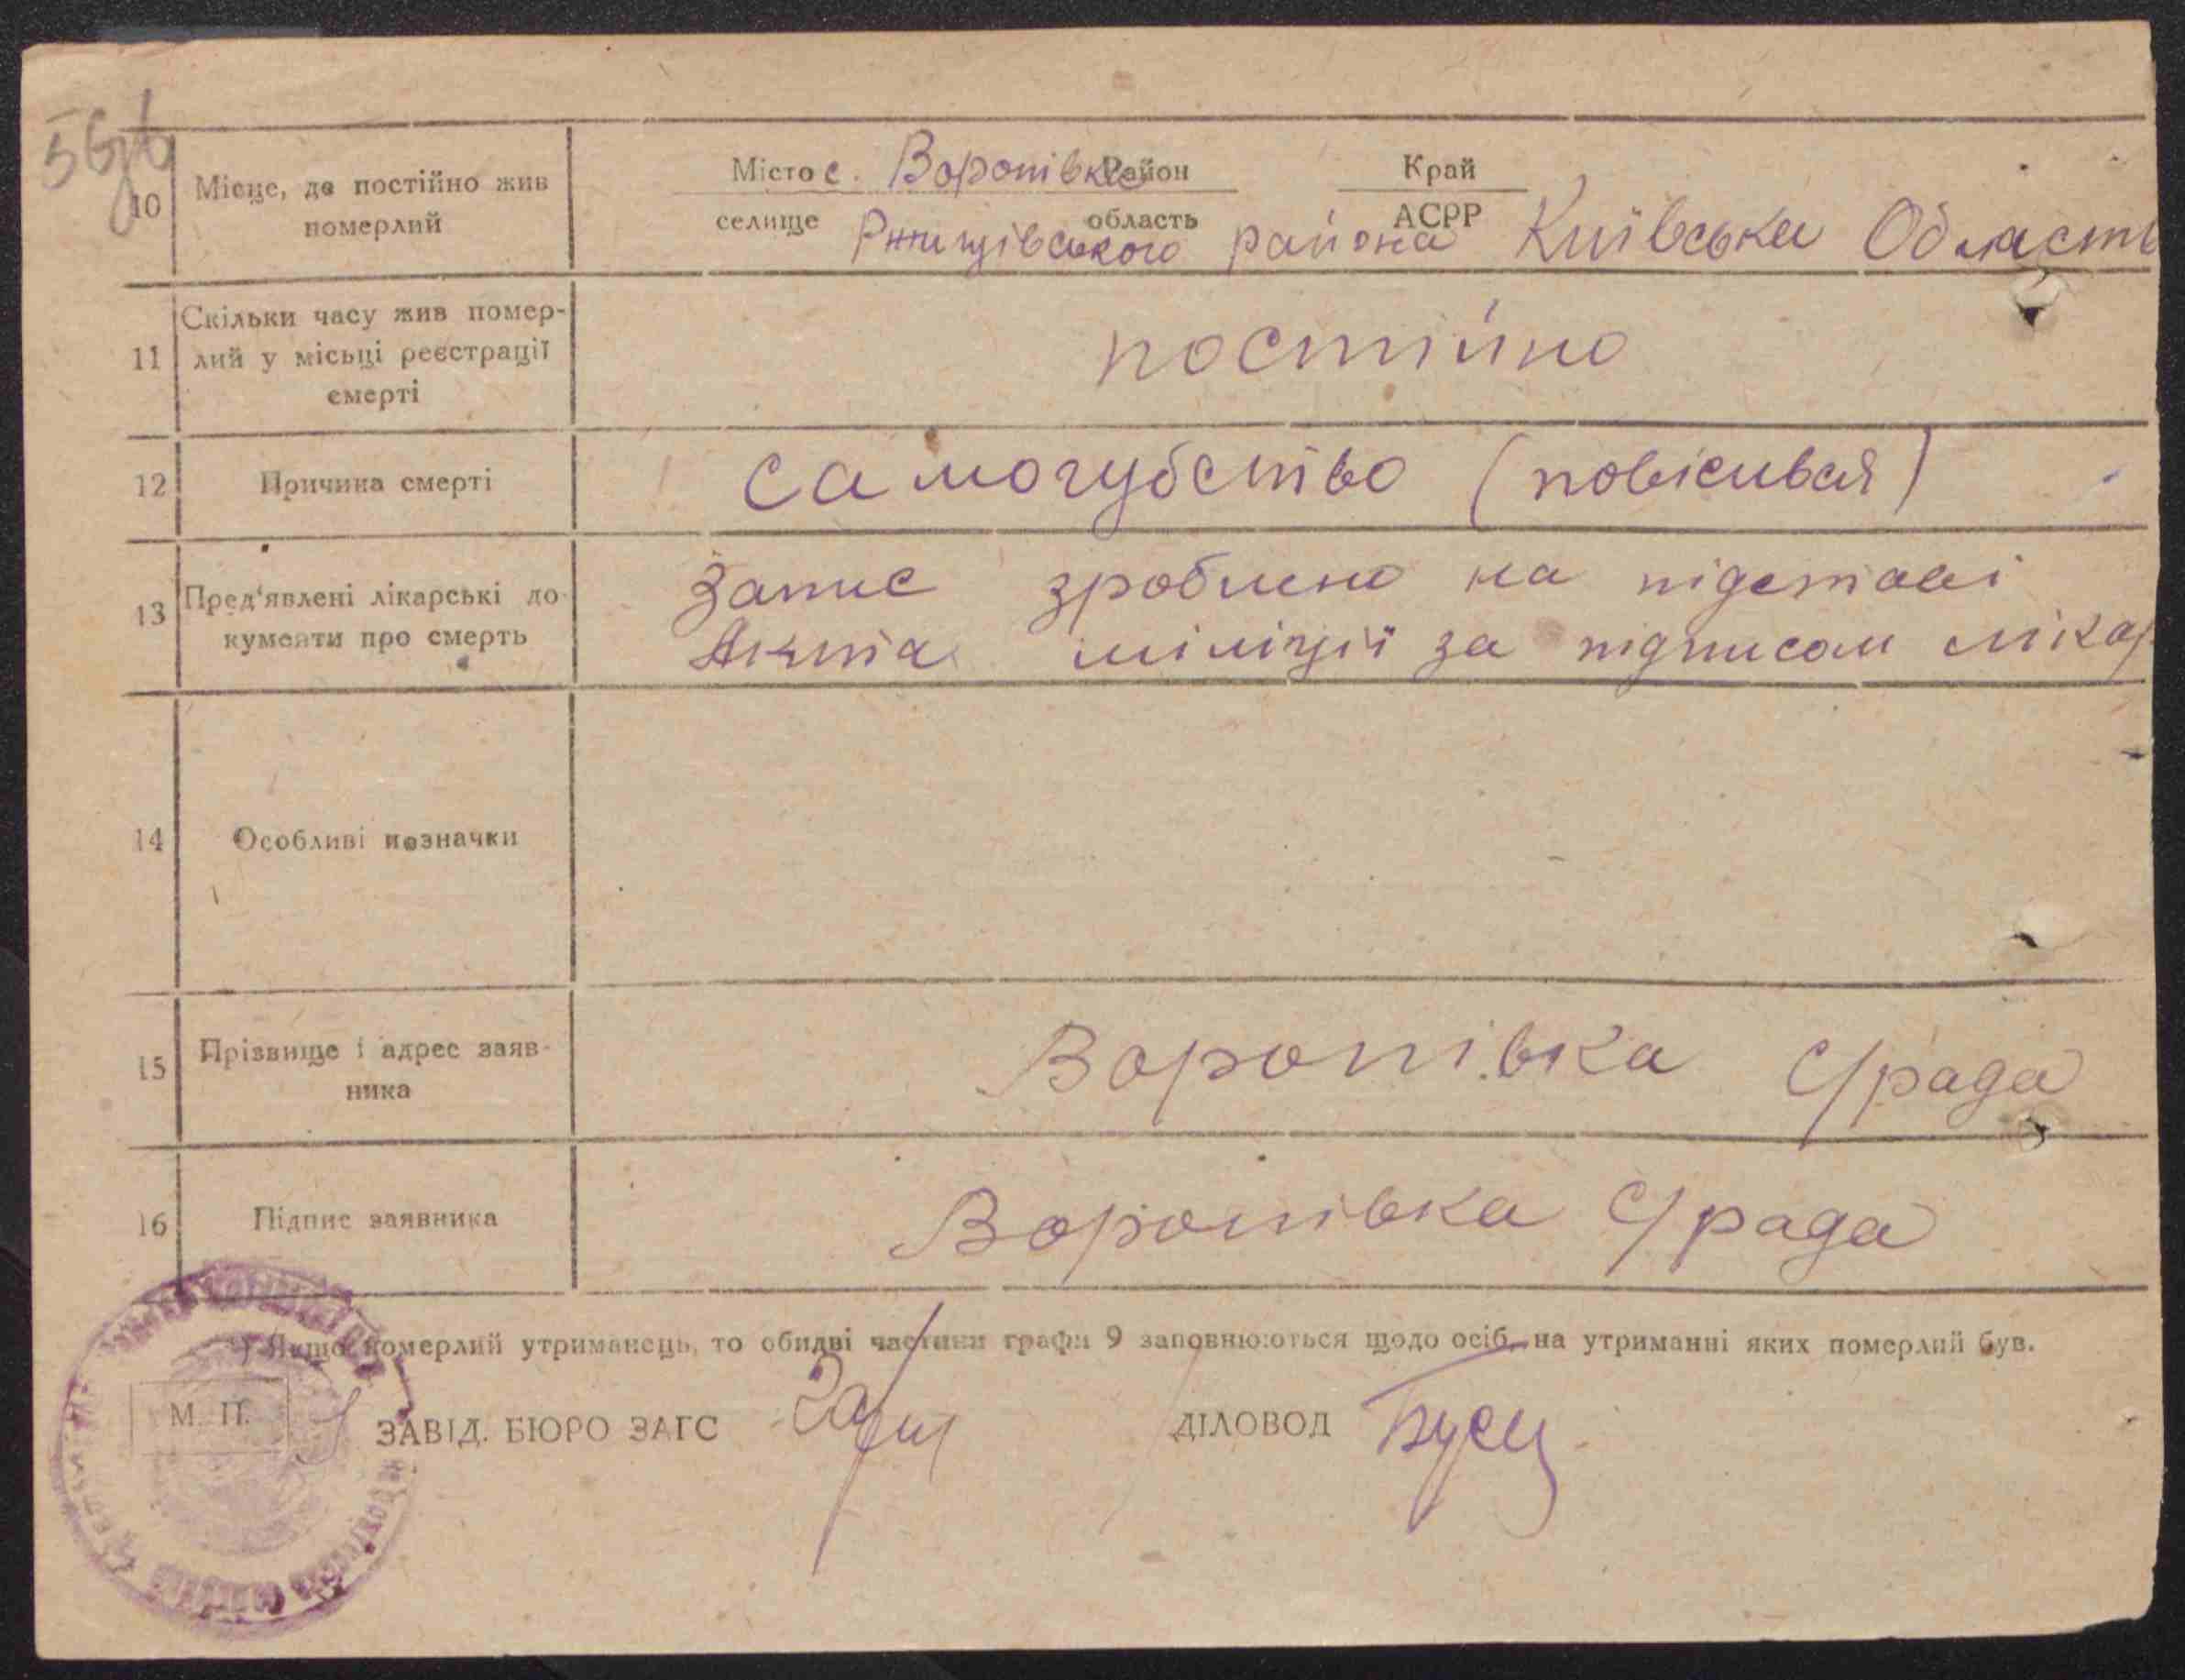 56
10 Місце, де постійно жив померлий
Місто с. Воропівка Район Край
селище область АСРР
Ржищівського района Київська Область
11 Скільки часу жив помер-
лий у місьці реєстрації
смерті
постійно
12 Причина смерті
самогубство (повісивая)
13 Пред'явлені лікарські до-
кументи про смерть
Запис зроблено на підставі
Акта міліції за підписом лікар
14 Особливі позначки
15 Прізвище і адрес заяв-
ника
Воропівка С/рада
16 Підпис заявника
Воропівка С/рада
*) Якщо померлий утриманець, то обидві частини графи 9 заповнюються щодо осіб, на утриманні яких померлий був.
М. П.
ЗАВІД. БЮРО ЗАГС
ДІЛОВОД